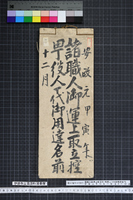 安政元甲寅年
諸職人御運上取立控
甲役人代御用達名前
十二月